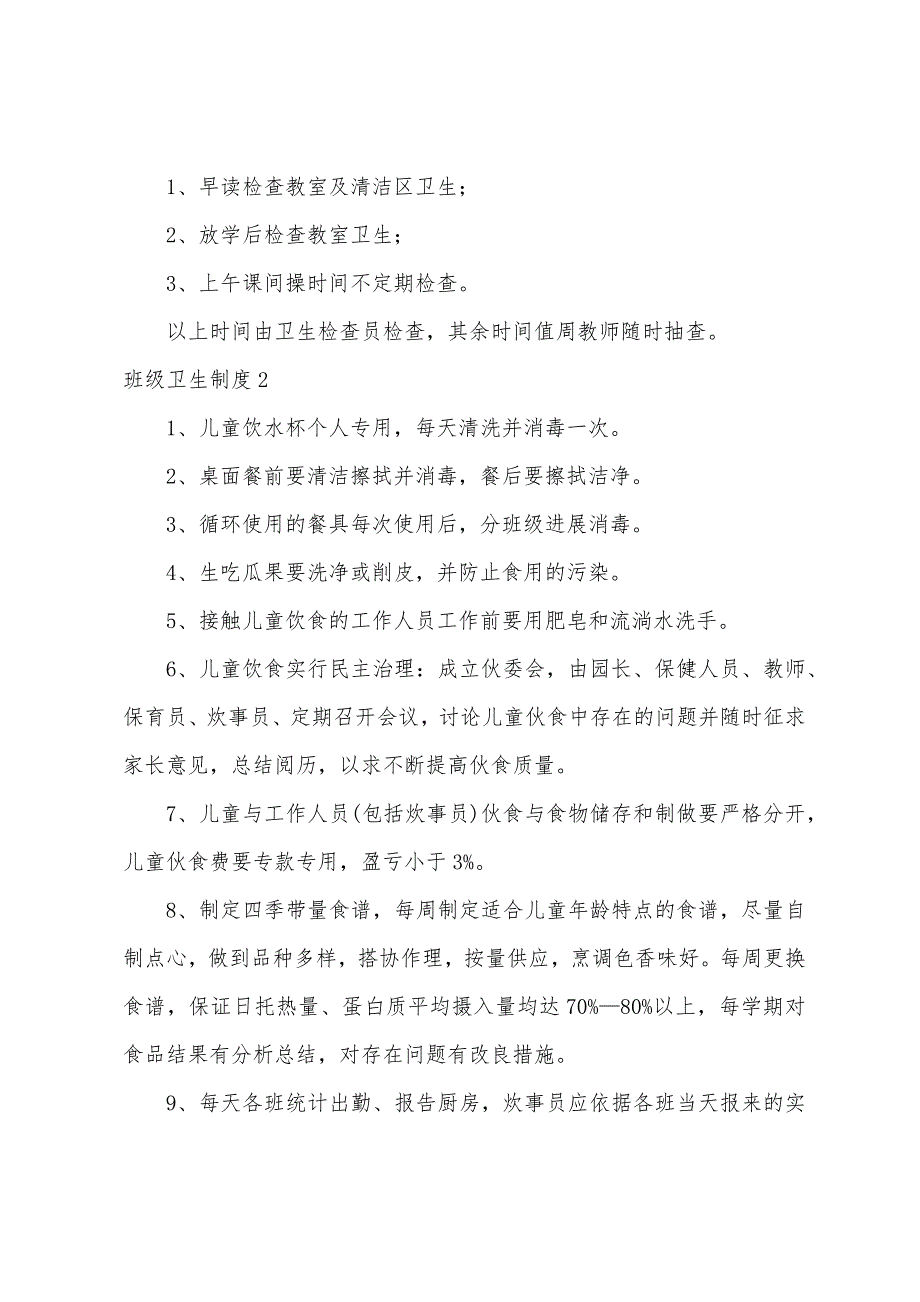 1、早读检查教室及清洁区卫生；
2、放学后检查教室卫生；
3、上午课间操时间不定期检查。
以上时间由卫生检查员检查，其余时间值周教师随时抽查。
班级卫生制度2
1、儿童饮水杯个人专用，每天清洗并消毒一次。
2、桌面餐前要清洁擦拭并消毒，餐后要擦拭洁净。
3、循环使用的餐具每次使用后，分班级进展消毒。
4、生吃瓜果要洗净或削皮，并防止食用的污染。
5、接触儿童饮食的工作人员工作前要用肥皂和流淌水洗手。
6、儿童饮食实行民主治理：成立伙委会，由园长、保健人员、教师、
保育员、炊事员、定期召开会议，讨论儿童伙食中存在的问题并随时征求
家长意见，总结阅历，以求不断提高伙食质量。
7、儿童与工作人员(包括炊事员)伙食与食物储存和制做要严格分开，
儿童伙食费要专款专用，盈亏小于3%。
8、制定四季带量食谱，每周制定适合儿童年龄特点的食谱，尽量自
制点心，做到品种多样，搭协作理，按量供应，烹调色香味好。每周更换
食谱，保证日托热量、蛋白质平均摄入量均达70%—80%以上，每学期对
食品结果有分析总结，对存在问题有改良措施。
9、每天各班统计出勤、报告厨房，炊事员应依据各班当天报来的实